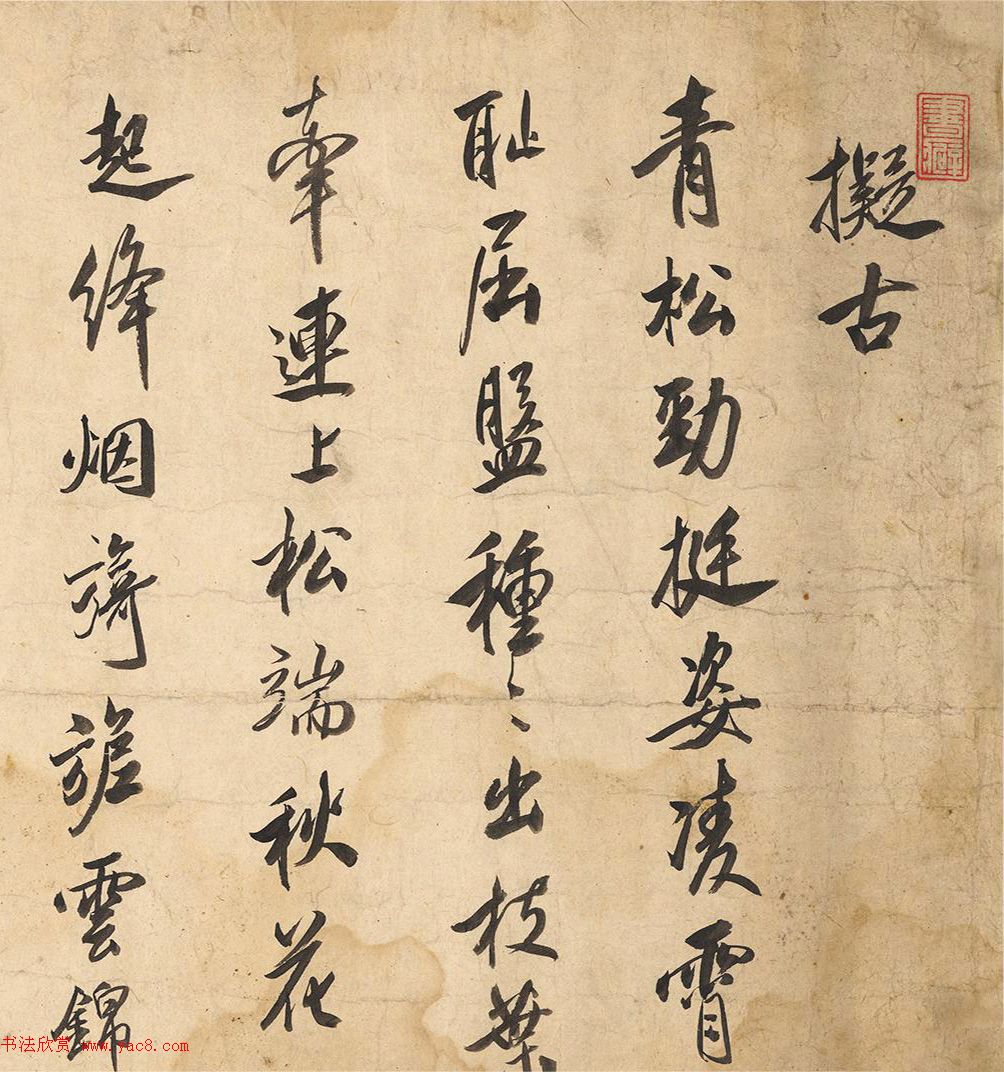 擬古
青松勁挺姿凌霄
耻屈盤種〻出枝葉
牽連上松端秋花
起絳烟旖旎雲錦
書癖
书法欣赏 www.yac8.com